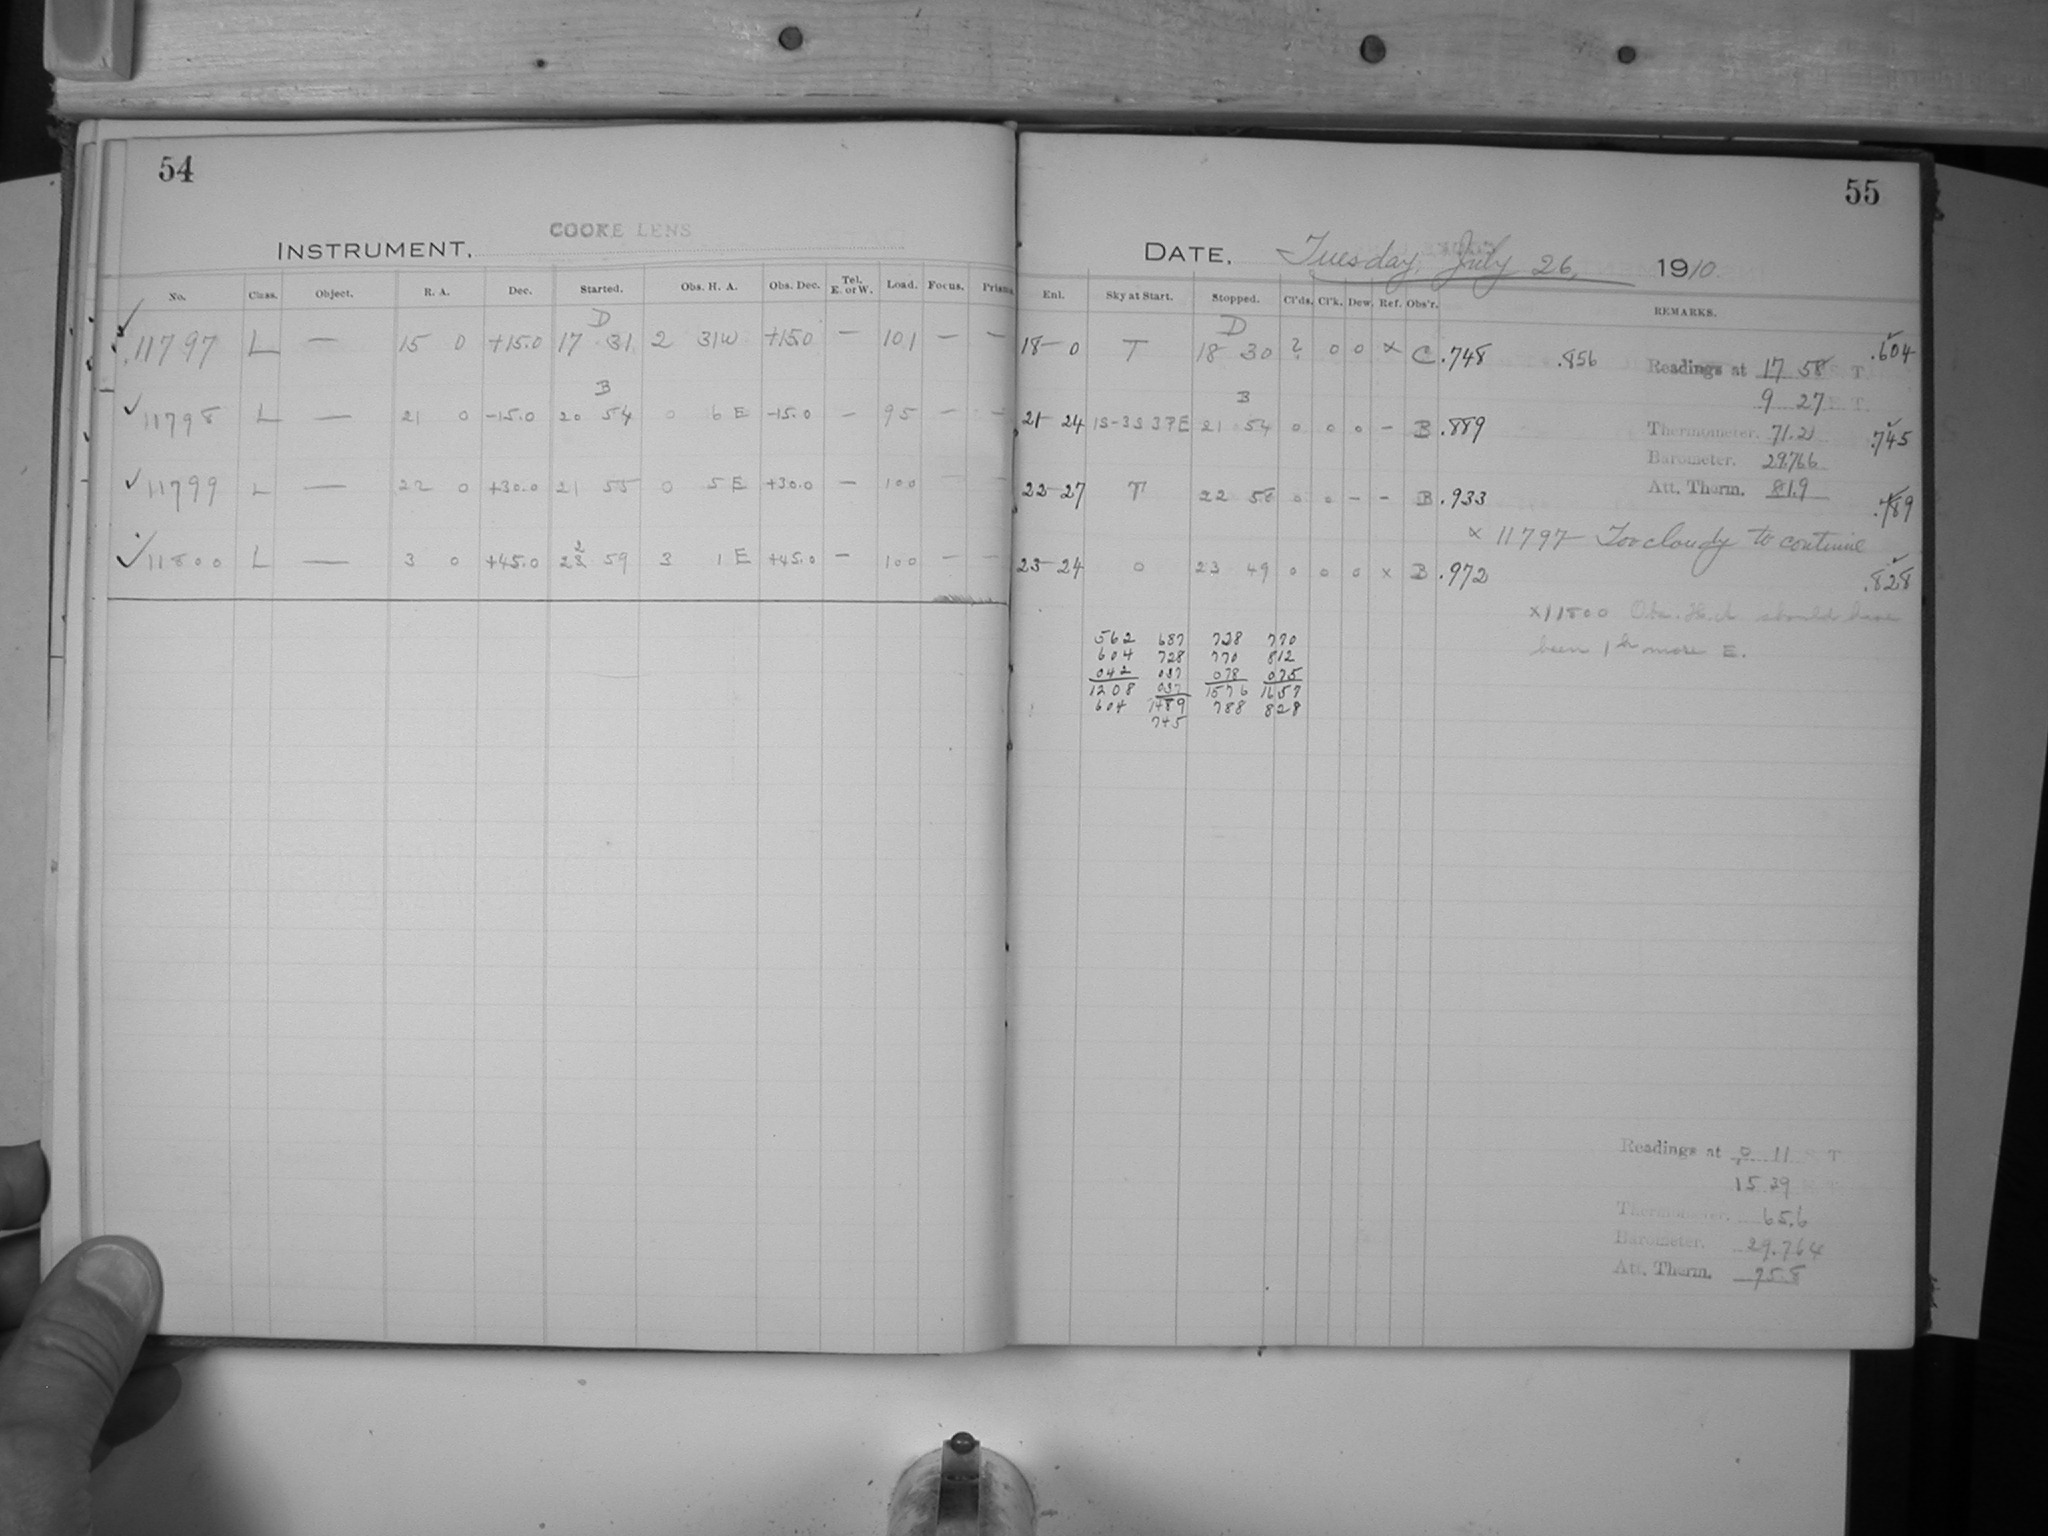 54
INSTRUMENT. COOKE LENS
No. Class. Object. R. A. Dec. Started. Obs. H. A. Obs. Dec. Tel. E. or W. Load. Focus. Prism.
D
11797 L — 15 0 +15.0 17 31 2 31W +15.0 — 101 — —
B
11798 L — 21 0 -15.0 20 54 0 6 E -15.0 — 95 — —
11799 L — 22 0 +30.0 21 55 0 5 E +30.0 — 100 — —
11800 L — 3 0 +45.0 22 59 3 1 E +45.0 — 100 — —
55
DATE. Tuesday, July 26, 1910.
Enl. Sky at Start. Stopped. Cl'ds. Cl'k. Dew. Ref. Obs'r. REMARKS.
D
18-0 T 18 30 ? 0 0 x C .748 .856 .604
B
21-24 1S-3S 37E 21 54 0 0 0 - B .889 .745
22-27 T 22 58 0 0 - - B .933 .789
23-24 0 23 49 0 0 0 x B .972 .828
Readings at 17 58 S. T.
9 27 E. T.
Thermometer. 71.2
Barometer. 29.766
Att. Therm. 81.9
x 11797 Too cloudy to continue
x11800 Obs. H. A should have
been 1h more E.
562 687 728 770
604 728 770 812
042 037 078 075
1208 037 1576 1657
604 1489 788 828
745
Readings at 0 11 S. T.
15 39
Thermometer. 65.6
Barometer. 29.764
Att. Therm. 75.8